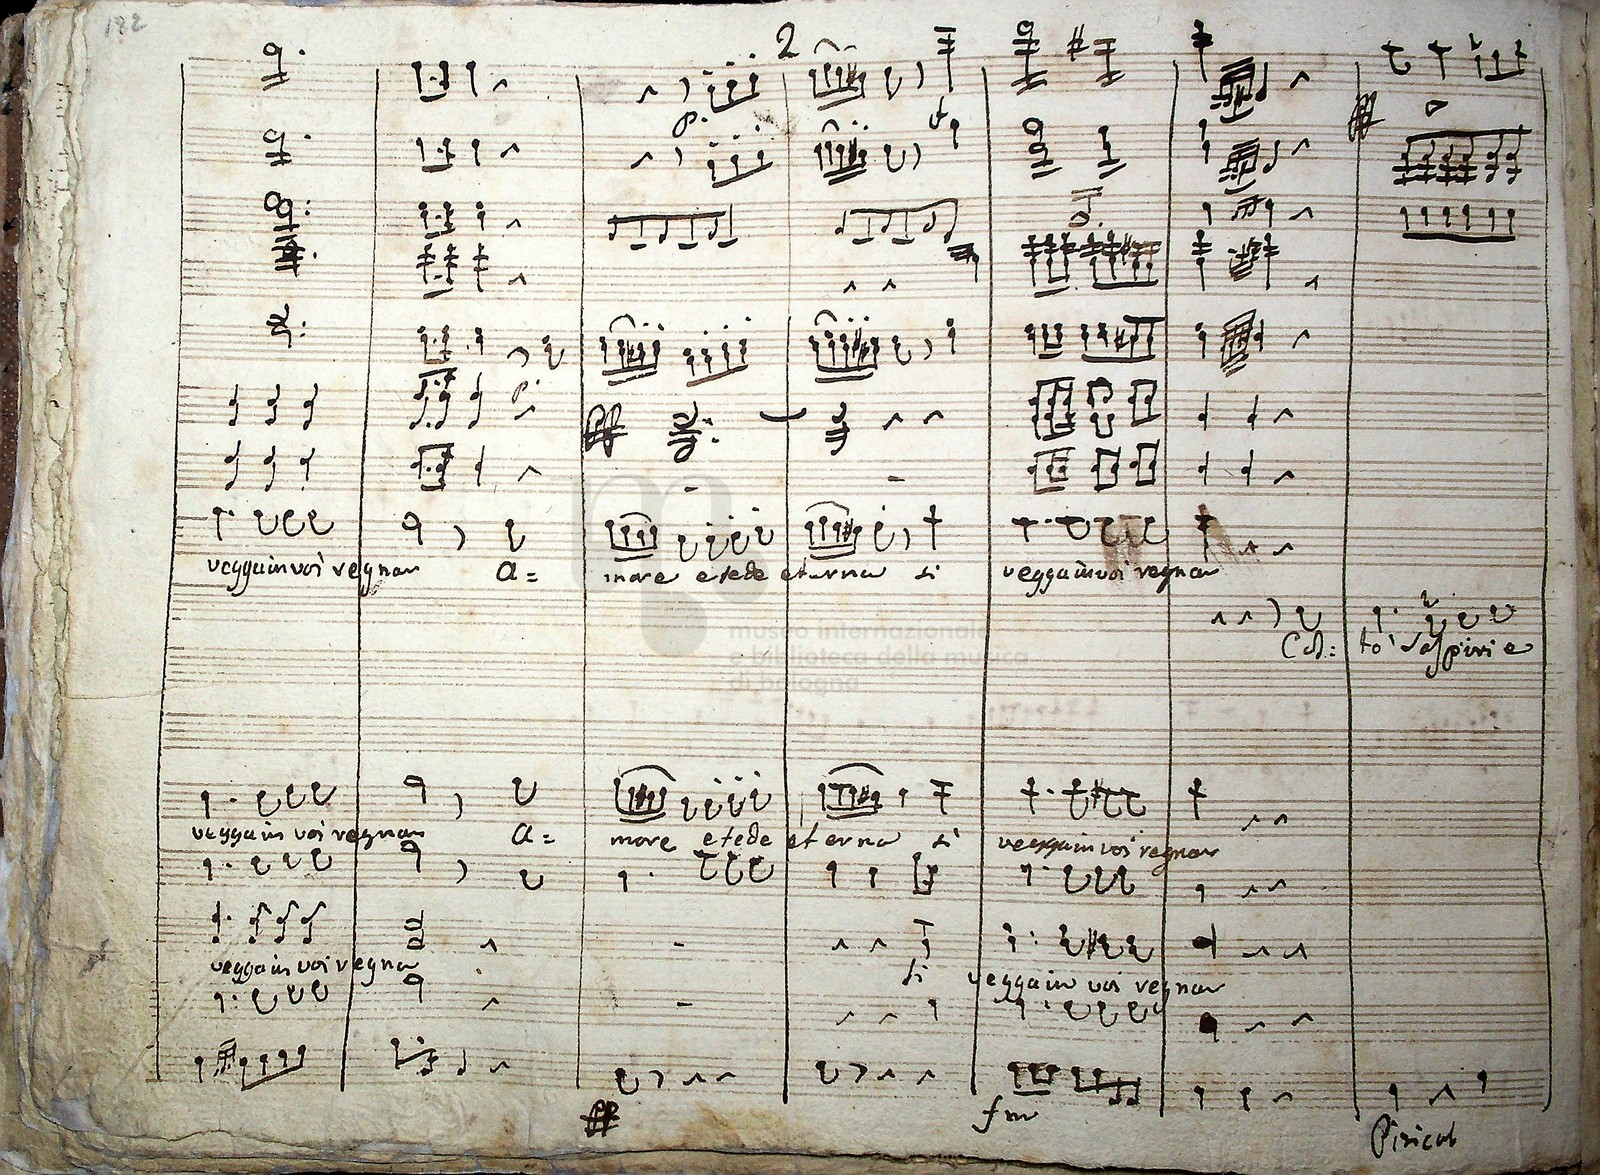 192
2
p.
veggain voi regnar A=
more e fede eterna si
veggain voi regnar
Co= to' sospiri e
museo internazionale
e biblioteca della musica
di bologna
veggain voi regnar A=
more e fede eterna si
veggain voi regnar
veggain voi regnar
si veggain voi regnar
Pizicat